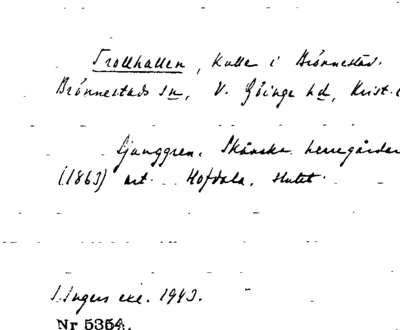 Trollhallen, Kulle i Brönnestad.
Brönnestads sn, V. Göinge hd, Krist.
Ljunggren. Skånska herregårdar
(1863) art. Hofdala, slutet.
I. Ingers exc. 1943.
Nr 5354.